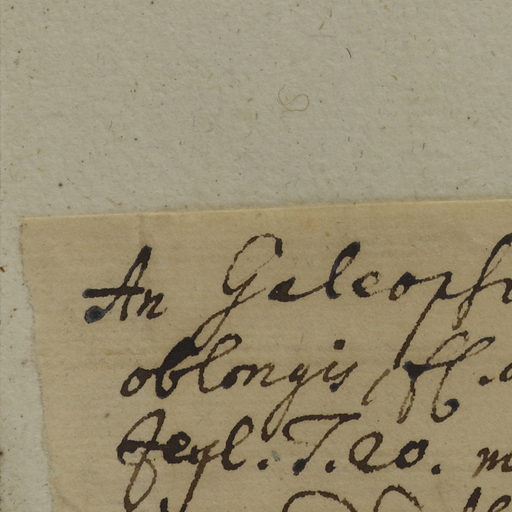 An Galeops
oblongis, fl.
Zeyl. T. 20.